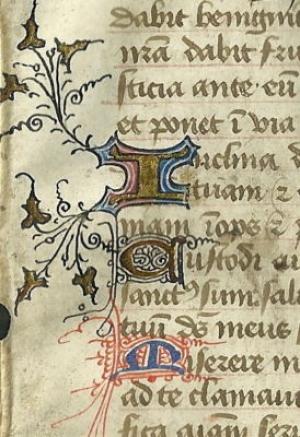 dabit benigni
nr̄a dabit fru
sticia ante eū
et ponet ī via
Inclina d
tuam ⁊
mam īops ⁊
Custodi
sanctꝰ sum sal
tuū ds̄ meus
Miserere m
ad te clamaui
fica aīam serui